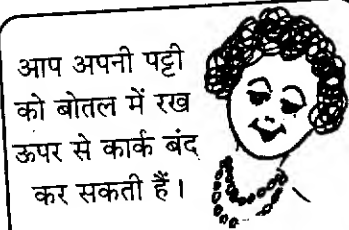 आप अपनी पट्टी
को बोतल में रख
ऊपर से कार्क बंद
कर सकती हैं।